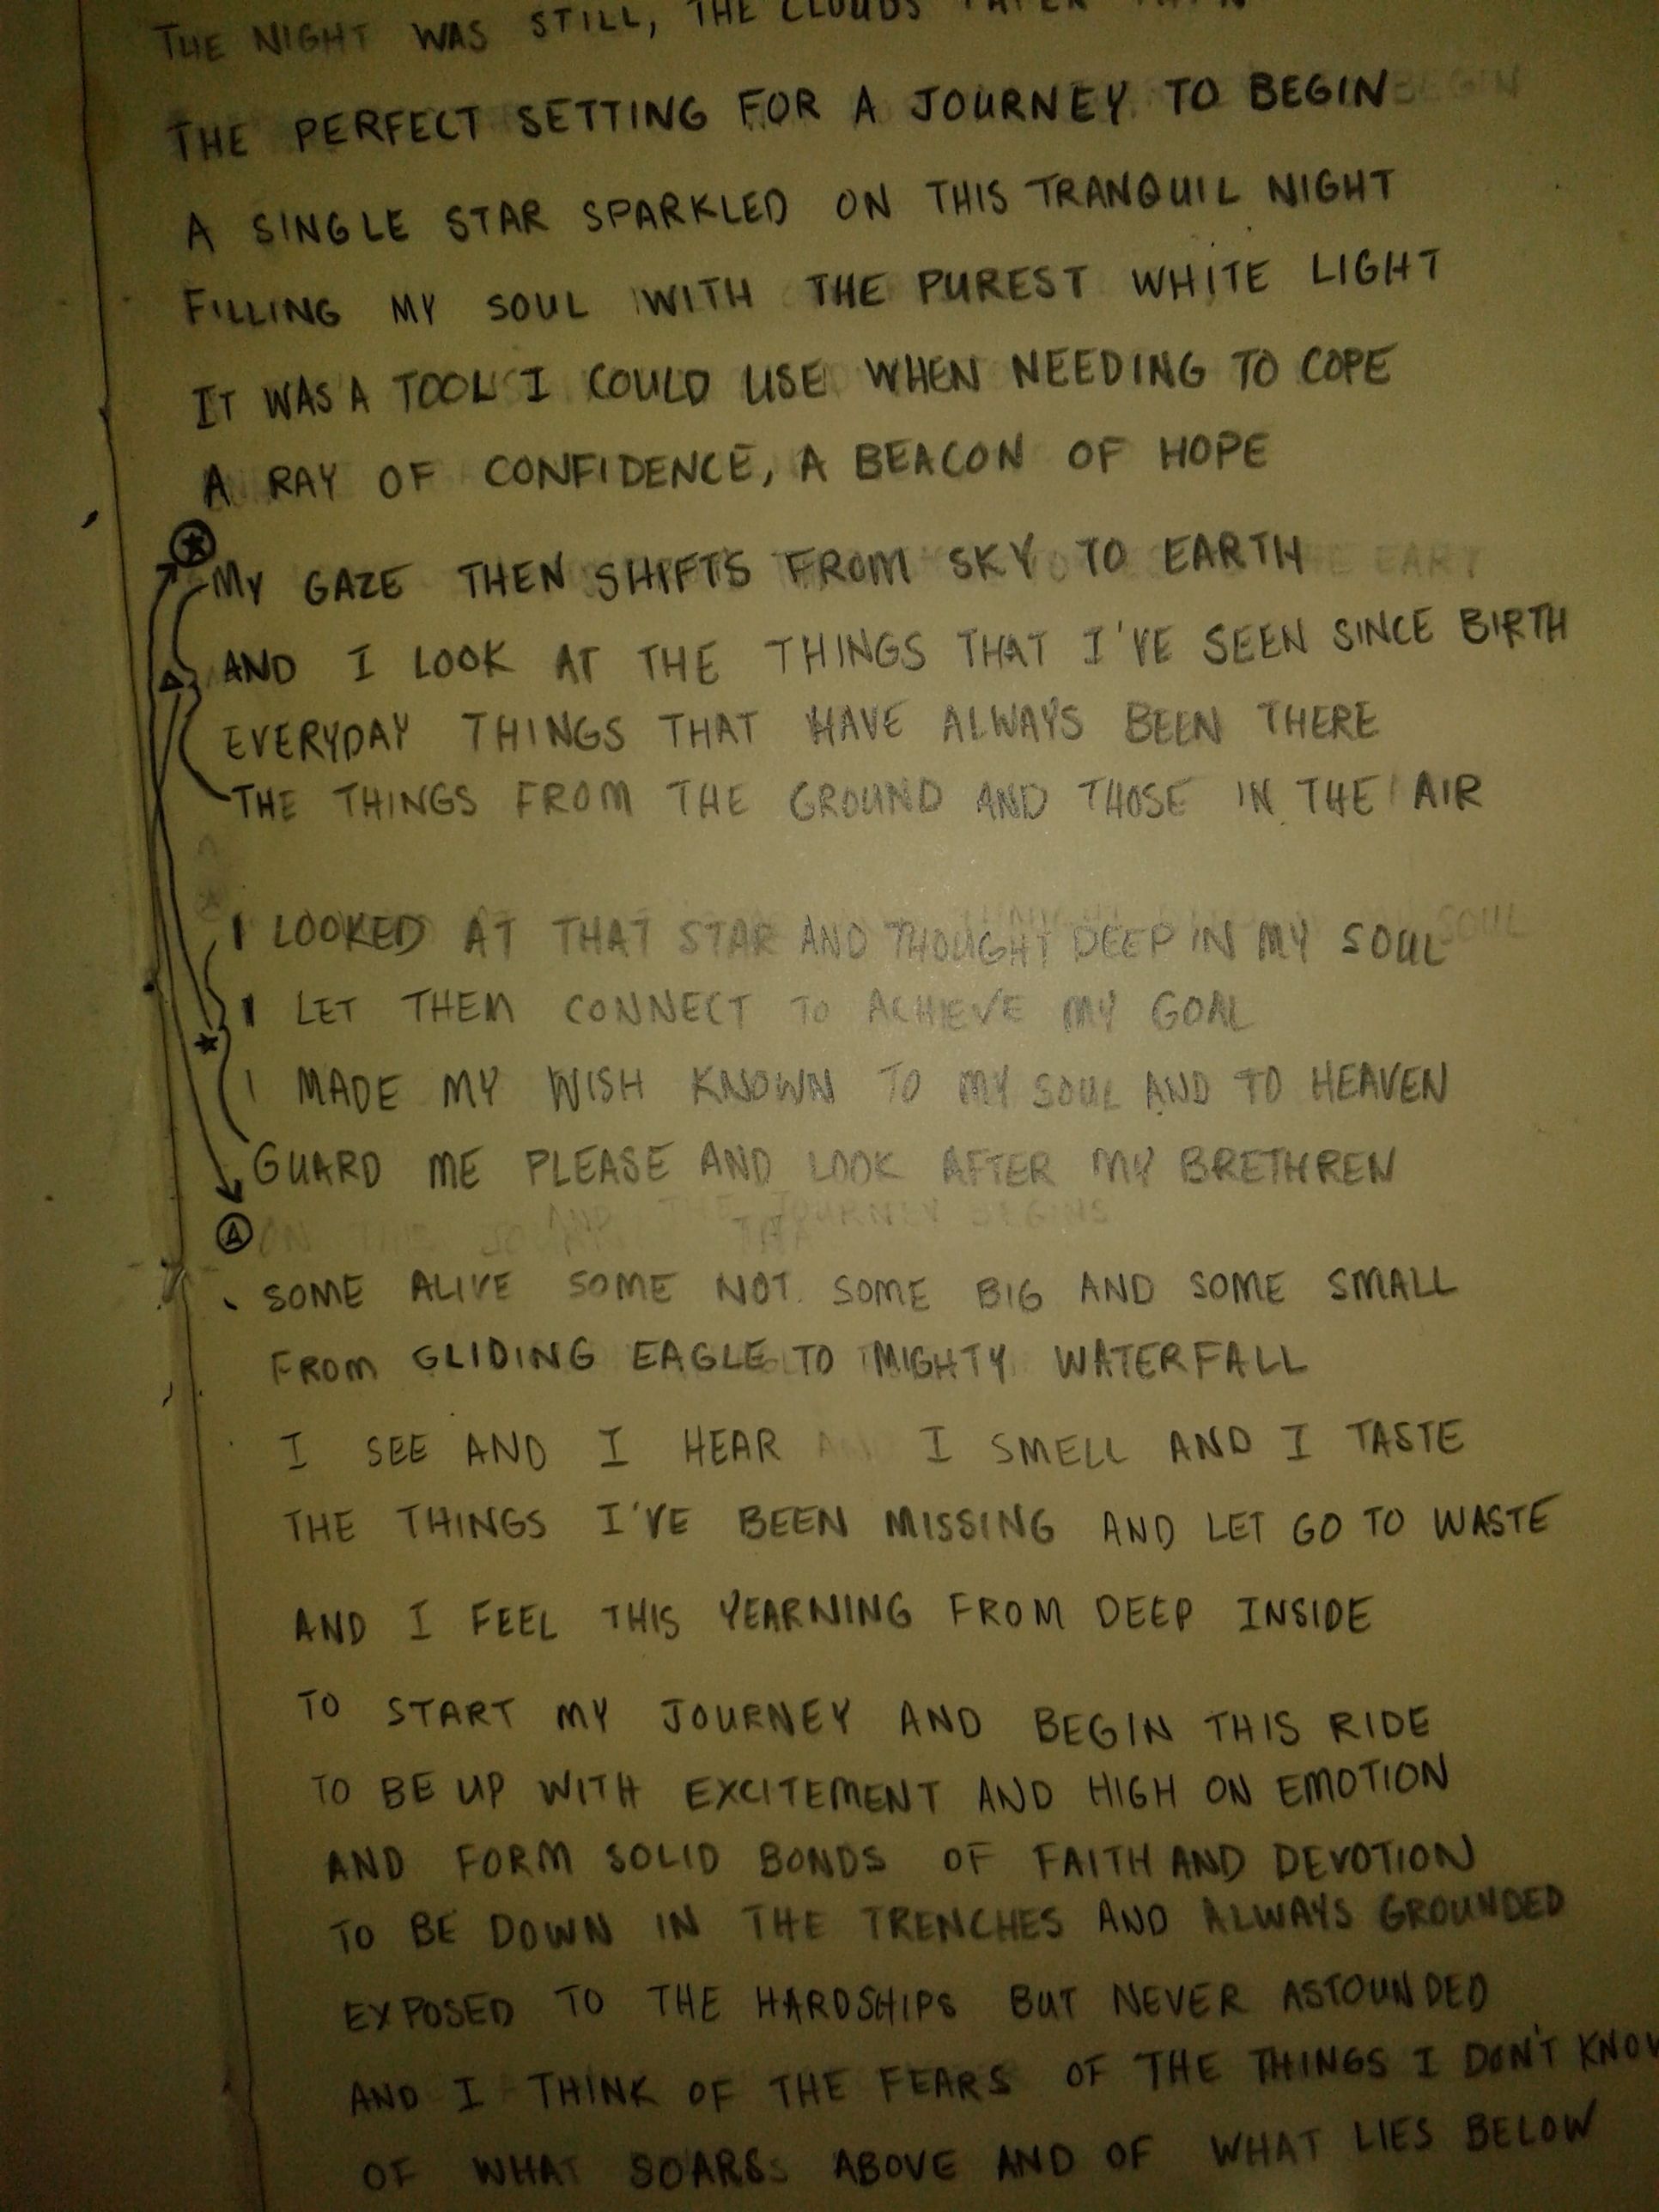 THE NIGHT WAS STILL, THE CLOUDS PAPER THIN
THE PERFECT SETTING FOR A JOURNEY TO BEGIN
A SINGLE STAR SPARKLED ON THIS TRANQUIL NIGHT
FILLING MY SOUL WITH THE PUREST WHITE LIGHT
IT WAS A TOOL I COULD USE WHEN NEEDING TO COPE
A RAY OF CONFIDENCE, A BEACON OF HOPE
MY GAZE THEN SHIFTS FROM SKY TO EARTH
AND I LOOK AT THE THINGS THAT I'VE SEEN SINCE BIRTH
EVERYDAY THINGS THAT HAVE ALWAYS BEEN THERE
THE THINGS FROM THE GROUND AND THOSE IN THE AIR
I LOOKED AT THAT STAR AND THOUGHT DEEP IN MY SOUL
I LET THEM CONNECT TO ACHIEVE MY GOAL
I MADE MY WISH KNOWN TO MY SOUL AND TO HEAVEN
GUARD ME PLEASE AND LOOK AFTER MY BRETHREN
AND THE JOURNEY BEGINS
SOME ALIVE SOME NOT. SOME BIG AND SOME SMALL
FROM GLIDING EAGLE TO MIGHTY WATERFALL
I SEE AND I HEAR I SMELL AND I TASTE
THE THINGS I'VE BEEN MISSING AND LET GO TO WASTE
AND I FEEL THIS YEARNING FROM DEEP INSIDE
TO START MY JOURNEY AND BEGIN THIS RIDE
TO BE UP WITH EXCITEMENT AND HIGH ON EMOTION
AND FORM SOLID BONDS OF FAITH AND DEVOTION
TO BE DOWN IN THE TRENCHES AND ALWAYS GROUNDED
EXPOSED TO THE HARDSHIPS BUT NEVER ASTOUNDED
AND I THINK OF THE FEARS OF THE THINGS I DON'T KNOW
OF WHAT SOARS ABOVE AND OF WHAT LIES BELOW